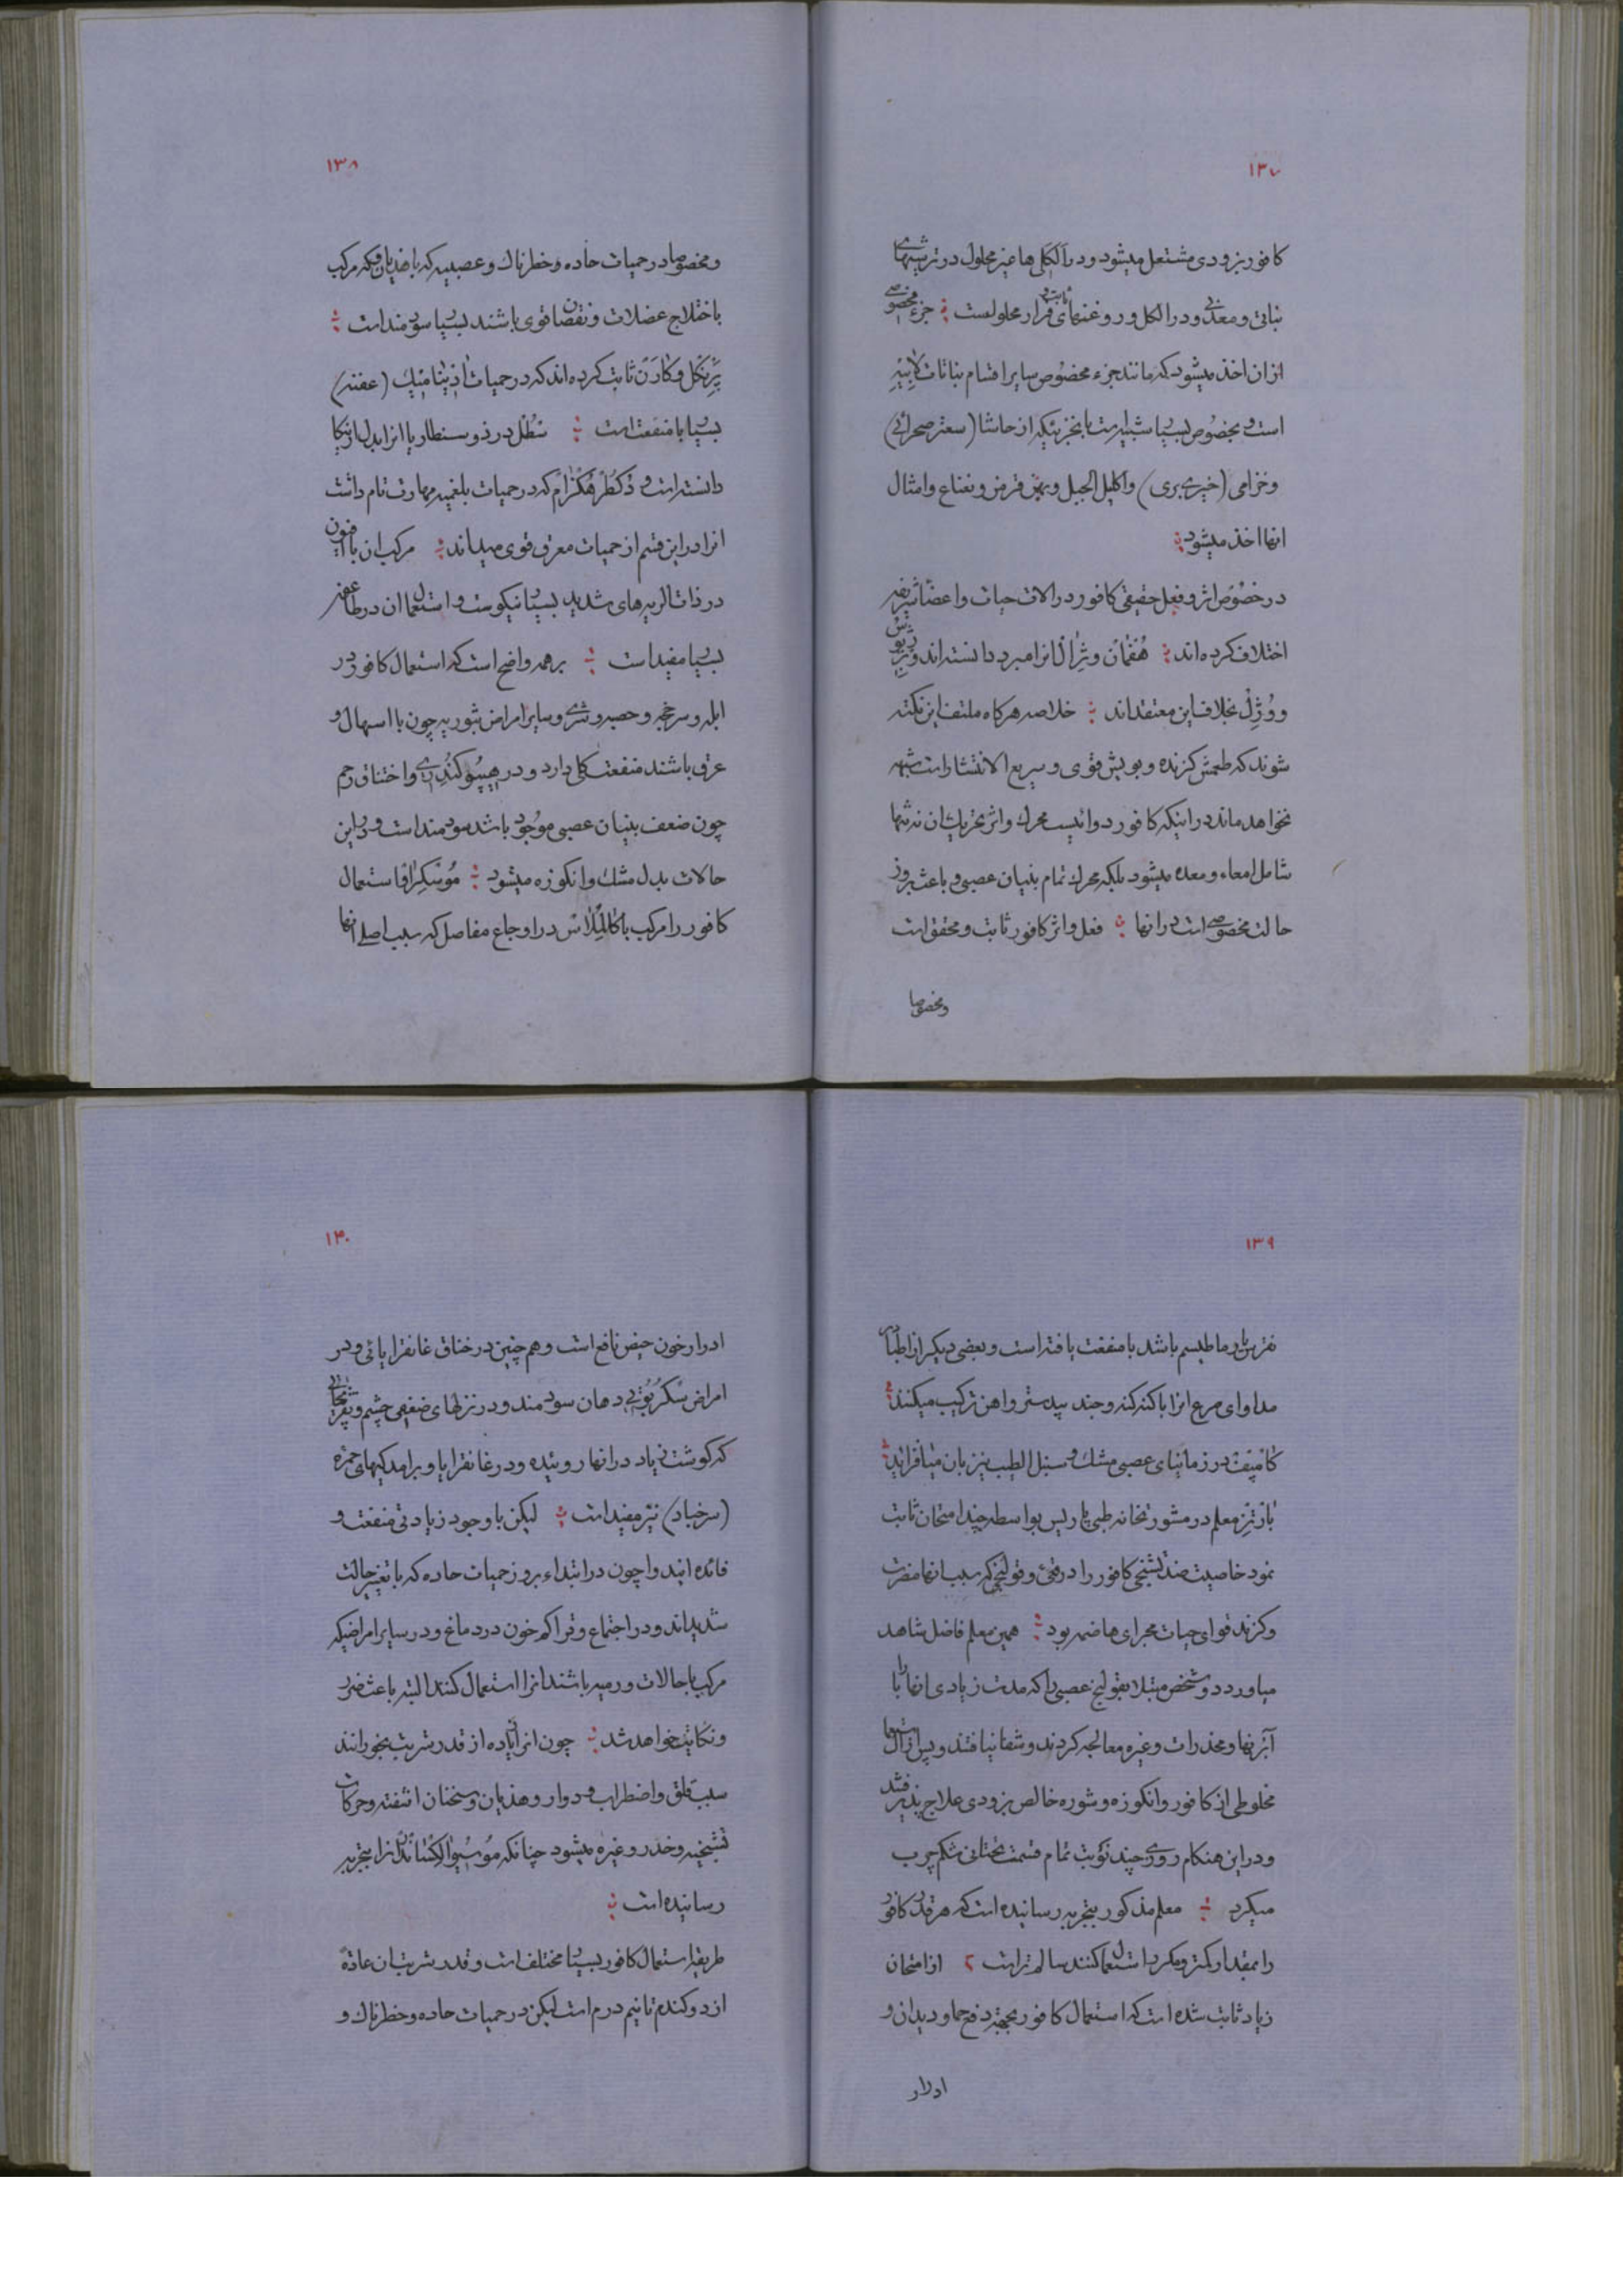 ۱۳۷
کافور بزودی مشتعل میشود و در اَلکَلی‌ها غیر محلول در ترشیهای
نباتی و معدنی و در الکل و روغنهای ثابت و فرار محلولست جزء مخصوصی
ازان اخذ میشود که مانند جزء مخصوص سایر اقسام نباتات لابیه
است و بخصوص بسیار شبیه است بانجزئیکه از حاشا (سعتر صحرائی)
و خزامی (خیری بری) واکلیل الجبل و بهن قرمز و نعناع و امثال
انها اخذ میشود
در خصوص اثر و فعل حقیقی کافور در الات حیات و اعضا
اختلاف کرده‌اند هُفمٰان و ژرٰال انرا مبرد دانسته‌اند و
و وُژِل بخلاف این معتقداند خلاصه هرکاه ملتفت این نکته
شوند که طعمش کزنده و بویش قوی و سریع الانتشار است شبهه
نخواهد ماند در اینکه کافور دوائیست محرک و اثر تحریک ان نه تنها
شامل امعاء و معده میشود بلکه محرک تمام بنیان عصبی و باعث بروز
حالت مخصوصی است در انها فعل و اثر کافور ثابت و محقق است
و مخصوصا
۱۳۸
و مخصوصا در حمیات حاده و خطرناک و عصبیه که با هذیان و فکه مرکب
با ختلاج عضلات و نقصان قوی باشند بسیار سودمند است
پْرینکل و کٰارَن ثابت کرده‌اند که در حمیات اَدینٰامیک (عفنه)
بسیار با منفعت است سْطُل در ذوسنطاریا انرا بدل ارنیکا
دانسته است و دُکطُر هُکزٰام که در حمیات بلغمیه مهارت تام داشت
انرا در این قسم از حمیات معرق قوی میداند مرکب ان با افیون
در ذات الریه‌های شدید بسیار نیکوست و استعمال ان در
بسیار مفید است بر همه واضح است که استعمال کافور در
ابله و سرخجه و حصبه و شری و سایر امراض بثوریه چون با اسهال و
عرق باشند منفعت کلی دارد و در هیپُوکُندری و اختناق رحم
چون ضعف بنیان عصبی موجود باشد سودمند است و در این
حالات بدل مشک و انکوزه میشود مُوسْکِرٰاف استعمال
کافور را مرکب با کالُمِلاس در اوجاع مفاصل که سبب اصلی انها
۱۳۹
نقرس یا رماطیسم باشد با منفعت یافته است و بعضی دیکر از اطباء در
مداوای صرع انرا با کنه کنه و جند بیدستر و اهن ترکیب میکنند
کٰامپِف در زمانیای عصبی مشک و سنبل الطیب نیز بان میافزاید
بازتِز معلم در مشورتخانه طبی پاریس بواسطه چند امتحان ثابت
نمود خاصیت ضد تشنجی کافور را در قئ و قولنجی که سبب انها مضرت
و کزند قوای حیات مجرای هاضمه بود همین معلم فاضل شاهد
میاورد دو شخص مبتلا بقولنج عصبی را که مدت زیادی انها را با
آبزنها و مخدرات و غیره معالجه کردند و شفا نیافتند و پس از آن
مخلوطی از کافور و انکوزه و شوره خالص بزودی علاج پذیرفتند
و در این هنکام روزی چند نوبت تمام قسمت تحتانی شکم چرب
میکرد معلم مذکور بتجربه رسانیده است که هرقدر کافور
را بمقدار کمتر و مکرر استعمال کنند سالم تر است از امتحان
زیاد ثابت شده است که استعمال کافور بجهته دفع حما و دیدان و
ادرار
۱۴۰
ادرار خون حیض نافع است و هم چنین در خناق غانغرایائی و در
امراض سْکُربُوتی دهان سودمند و در نزلهای ضعفی چشم و
که کوشت زیاد در انها روئیده و در غانغرایا و برامدکیهای حمره
(سرخباد) نیز مفید است لیکن با وجود زیادتی منفعت و
فائده ایندوا چون در ابتداء بروز حمیات حاده که با تغیر حالت
شدیداند و در اجتماع و تراکم خون در دماغ و در سایر امراضیکه
مرکب با حالات ورمیه باشند انرا استعمال کنند البته باعث ضرر
و نکایت خواهد شد چون انرا زیاده از قدر شربت بخورانند
سبب قلق و اضطراب و دوار و هذیان و سخنان اشفته و حرکات
تشنجیه و خدر و غیره میشود چنانکه مُوسْیُو الِکساندْر انرا بتجربه
رسانیده است
طریقه استعمال کافور بسیار مختلف است و قدر شربت ان عادةً
از دو کندم تا نیم درم است لیکن در حمیات حاده و خطرناک و